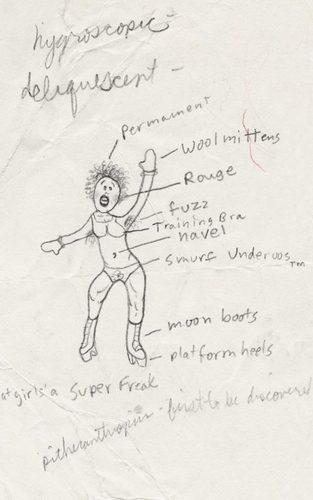 hygroscopic -
deliquescent -
Permament
wool mittens
Rouge
fuzz
Training Bra
navel
Smurf Underoos TM
moon boots
platform heels
at girl's a Super Freak
pithecanthropus - first to be discovered